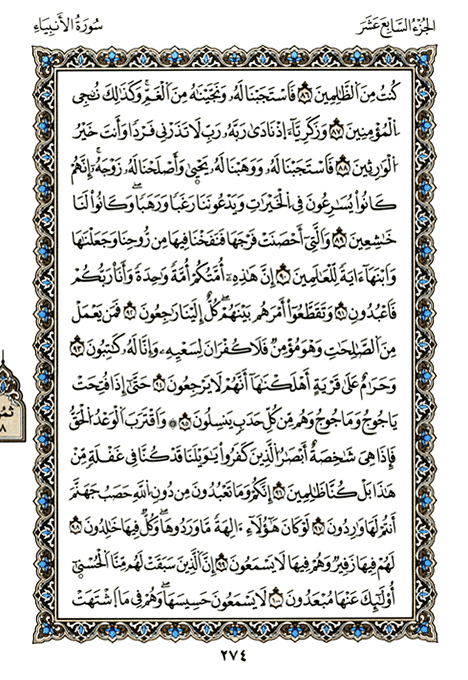 الجُزْءُ السَّابِعَ عَشَرَ
سُورَةُ الأَنبِيَاءِ
كُنتُ مِنَ الظَّٰلِمِينَ ٨٦ فَاسْتَجَبْنَا لَهُۥ وَنَجَّيْنَٰهُ مِنَ الْغَمِّۖ وَكَذَٰلِكَ نُۨجِي
الْمُؤْمِنِينَ ٨٧ وَزَكَرِيَّآءَ اِ۪ذْ نَادَىٰ رَبَّهُۥ رَبِّ لَا تَذَرْنِي فَرْدًا وَأَنتَ خَيْرُ
الْوَٰرِثِينَ ٨٨ فَاسْتَجَبْنَا لَهُۥ وَوَهَبْنَا لَهُۥ يَحْيَىٰ وَأَصْلَحْنَا لَهُۥ زَوْجَهُۥۖ إِنَّهُمْ
كَانُوا يُسَٰرِعُونَ فِي الْخَيْرَٰتِ وَيَدْعُونَنَا رَغَبًا وَرَهَبًاۖ وَكَانُوا لَنَا
خَٰشِعِينَ ٨٩ وَالَّتِي أَحْصَنَتْ فَرْجَهَا فَنَفَخْنَا فِيهَا مِن رُّوحِنَا وَجَعَلْنَٰهَا
وَابْنَهَا ءَايَةً لِّلْعَٰلَمِينَ ٩٠ إِنَّ هَٰذِهِۦ أُمَّتُكُمْ أُمَّةً وَٰحِدَةً وَأَنَا رَبُّكُمْ
فَاعْبُدُونِ ٩١ وَتَقَطَّعُوا أَمْرَهُم بَيْنَهُمْۖ كُلٌّ إِلَيْنَا رَٰجِعُونَ ٩٢ فَمَن يَعْمَلْ
مِنَ الصَّٰلِحَٰتِ وَهُوَ مُؤْمِنٌ فَلَا كُفْرَانَ لِسَعْيِهِۦ وَإِنَّا لَهُۥ كَٰتِبُونَ ٩٣
وَحَرَٰمٌ عَلَىٰ قَرْيَةٍ أَهْلَكْنَٰهَا أَنَّهُمْ لَا يَرْجِعُونَ ٩٤ حَتَّىٰ إِذَا فُتِحَتْ
يَاجُوجُ وَمَاجُوجُ وَهُم مِّن كُلِّ حَدَبٍ يَنسِلُونَ ٩٥ ۞ وَاقْتَرَبَ الْوَعْدُ الْحَقُّ
فَإِذَا هِيَ شَٰخِصَةٌ أَبْصَٰرُ الَّذِينَ كَفَرُوا يَٰوَيْلَنَا قَدْ كُنَّا فِي غَفْلَةٍ مِّنْ
هَٰذَا بَلْ كُنَّا ظَٰلِمِينَ ٩٦ إِنَّكُمْ وَمَا تَعْبُدُونَ مِن دُونِ اللَّهِ حَصَبُ جَهَنَّمَ
أَنتُمْ لَهَا وَٰرِدُونَ ٩٧ لَوْ كَانَ هَٰؤُلَآءِ ءَالِهَةً مَّا وَرَدُوهَاۖ وَكُلٌّ فِيهَا خَٰلِدُونَ ٩٨
لَهُمْ فِيهَا زَفِيرٌ وَهُمْ فِيهَا لَا يَسْمَعُونَ ٩٩ إِنَّ الَّذِينَ سَبَقَتْ لَهُم مِّنَّا الْحُسْنَىٰ
أُوْلَٰٓئِكَ عَنْهَا مُبْعَدُونَ ١٠٠ لَا يَسْمَعُونَ حَسِيسَهَاۖ وَهُمْ فِي مَا اشْتَهَتَ
٢٧٤